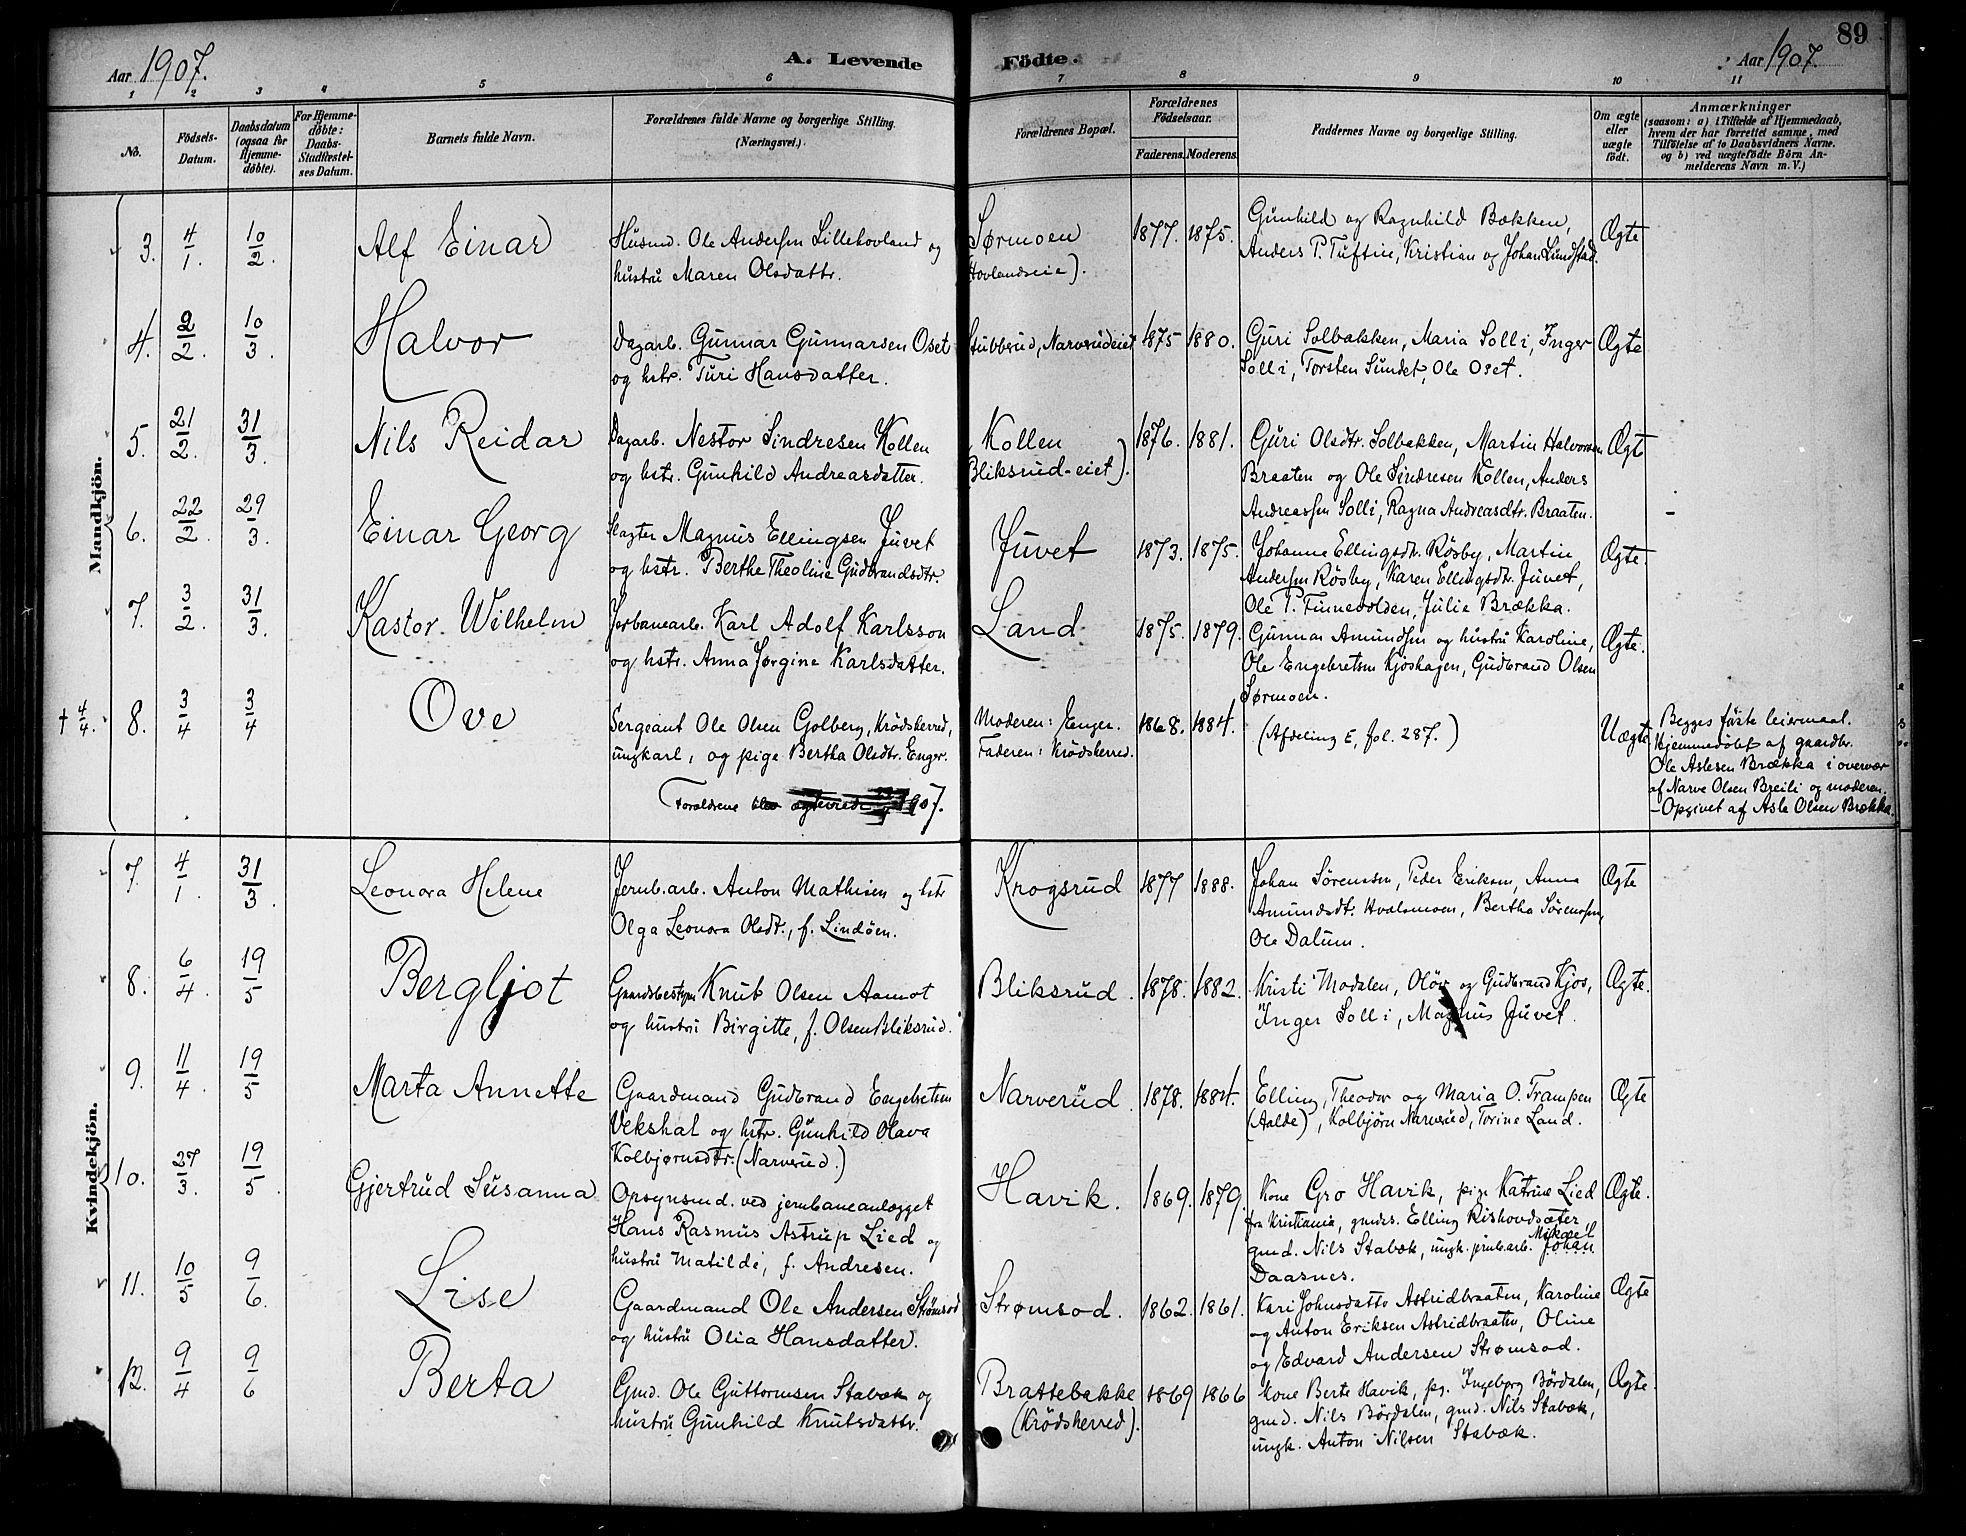 89
Aar 1907.
A. Levende Födte.
Aar 1907.
1 2 3 4 5 6 7 8 9 10 11
No.
Födsels-
Datum.
Daabsdatum
(ogsaa for
Hjemme-
döbte).
For Hjemme-
döbte:
Daabs-
Stadfæstel-
ses Datum.
Barnets fulde Navn.
Forældrenes fulde Navne og borgerlige Stilling.
(Næringsvei.)
Forældrenes Bopæl.
Forældrenes
Födselsaar.
Faderens. Moderens.
Faddernes Navne og borgerlige Stilling.
Om ægte
eller
uægte
födt.
Anmærkninger
(saasom: a) i Tilfælde af Hjemmedaab,
hvem der har forrettet samme, med
Tilföielse af to Daabsvidners Navne.
og b) ved uægtefödte Börn An-
melderens Navn m. V.)
Mandkjön.
3. 4/1. 10/2. Alf Einar
Husmd. Ole Andersen Lillehovland og
hustru Maren Olsdattr.
Sørmoen
(Hovlandseie).
1877. 1875.
Gunhild og Ragnhild Bækken,
Anders P. Tuftin, Kristian og Johan Lundstad.
Ægte
4. 2/2. 10/3. Halvor
Dagarb. Gunnar Gunnarsen Oset
og hstr. Turi Hansdatter.
Stubberud, Narverudeiet
1875 1880.
Guri Solbakken, Maria Solli, Inger
Solli, Torsten Sundet, Ole Oset.
Ægte
5. 21/2. 31/3. Nils Reidar
Dagarb. Nestor Sindresen Kollen
og hstr. Gunhild Andreasdatter.
Kollen
(Bliksrud-eiet).
1876. 1881.
Guri Olsdtr. Solbakken, Martin Halvorsen
Braaten og Ole Sindresen Kollen, Anders
Andreassen Solli, Ragna Andreasdtr. Braaten.
Ægte
6. 22/2. 29/3. Einar Georg
Slagter Magnus Ellingsen Juvet
og hstr. Berthe Theoline Gudbrandsdtr.
Juvet
1873. 1875.
Johanne Ellingsdtr. Røsby, Martin
Andersen Røsby, Karen Ellingsdtr. Juvet,
Ole P. Finnevolden, Julie Brækka.
Ægte.
7. 3/2. 31/3. Kastor Wilhelm
Jerbanearb. Karl Adolf Karlsson
og hstr. Anna Jørgine Karlsdatter.
Land
1875. 1879.
Gunnar Amundsen og hustru Karoline,
Ole Engebretsen Kjøshagen, Gudbrand Olsen
Sørmoen.
Ægte.
† 4/4. 8. 3/4 3/4 Ove
Sergeant Ole Olsen Golberg, Krödsherred,
ungkarl, og pige Bertha Olsdtr. Enger.
Forældrene blev ægteviede 1907.
Moderen: Enger.
Faderen: Krödsherred.
1868. 1884.
(Afdeling E, fol. 287.)
Uægte
Begges fóste leiermaal.
Hjemmedöbt af gaardbr.
Ole Aslesen Brækka i overvær
af Narve Olsen Breili og moderen.
– Opgivet af Asle Olsen Brækka.
Kvindekjön.
7. 4/1. 31/3. Leonora Helene
Jernb.arb. Anton Mathisen og hstr
Olga Leonora Olsdt., f. Lindöen.
Krogsrud
1877 1888.
Johan Sörensen, Peder Eriksen, Anna
Amundsdt. Hvalsmoen, Bertha Sörensen,
Ole Dalum.
Ægte
8. 6/4. 19/5 Bergljot
Gaardsbestyrer Knut Olsen Aamot
og hustru Birgitte, f. Olsen Bliksrud.
Bliksrud.
1878. 1882.
Kristi Modalen, Olöv og Gudbrand Kjos,
Inger Solli, Magnus Juvet.
Ægte.
9. 11/4. 19/5 Marta Annette
Gaardmand Gudbrand Engebretsen
Vekshal og hstr. Gunhild Olava
Kolbjørnsdtr. (Narverud.)
Narverud.
1878. 1884.
Elling, Theodor og Maria O. Trampen
(Aalde), Kolbjörn Narverud, Torine Land.
Ægte
10. 27/3. 19/5. Gjertrud Susanna
Opsynsmd. ved jernbaneanlægget
Hans Rasmus Astrup Lied og
hustru Matilde, f. Andresen.
Havik.
1869. 1879.
Kone Gro Havik, pige Katrine Lied
fra Kristiania, gmds. Elling Rishovdsæter,
gmd. Nils Stabæk, ungk. jernb.arb. Mikael Johan
Daasnes.
Ægte.
11. 10/5 9/6. Lise
Gaardmand Ole Andersen Strömsod
og hustru Olia Hansdatter.
Strømsod.
1862. 1861.
Kari Johnsdatter Astridbraaten, Karoline
og Anton Eriksen Astridbraaten, Oline
og Edvard Andersen Strømsod.
Ægte
12. 9/4 9/6 Berta
Gmd. Ole Guttormsen Stabæk og
hustru Gunhild Knutsdattr.
Brattebakke
(Krödsherred).
1869 1866
Kone Berte Havik, pg. Ingeborg Bördalen,
gmd. Nils Bördalen, gmd. Nils Stabæk,
ungk. Anton Nilsen Stabæk.
Ægte.